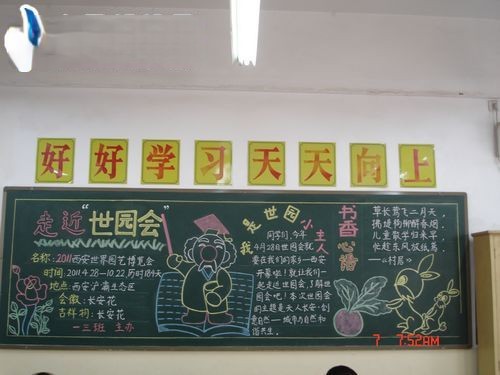 好好学习天天向上
走近“世园会”
名称：2011西安世界园艺博览会
时间：2011.4.28-10.22历时184天
地点：西安浐灞生态区
会徽：长安花
吉祥物：长安花
一三班 主办
我是世园小主人
同学们，今年
4月28日世园会就
要在我们家乡—西安
开幕啦！就让我们一
起走近世园会，了解世
园会吧！本次世园会
的主题是天人长安·创
意自然——城市与自然和
谐共生。
书香心语
草长莺飞二月天，
拂堤杨柳醉春烟。
儿童散学归来早，
忙趁东风放纸鸢。
——《村居》
7 7:52AM